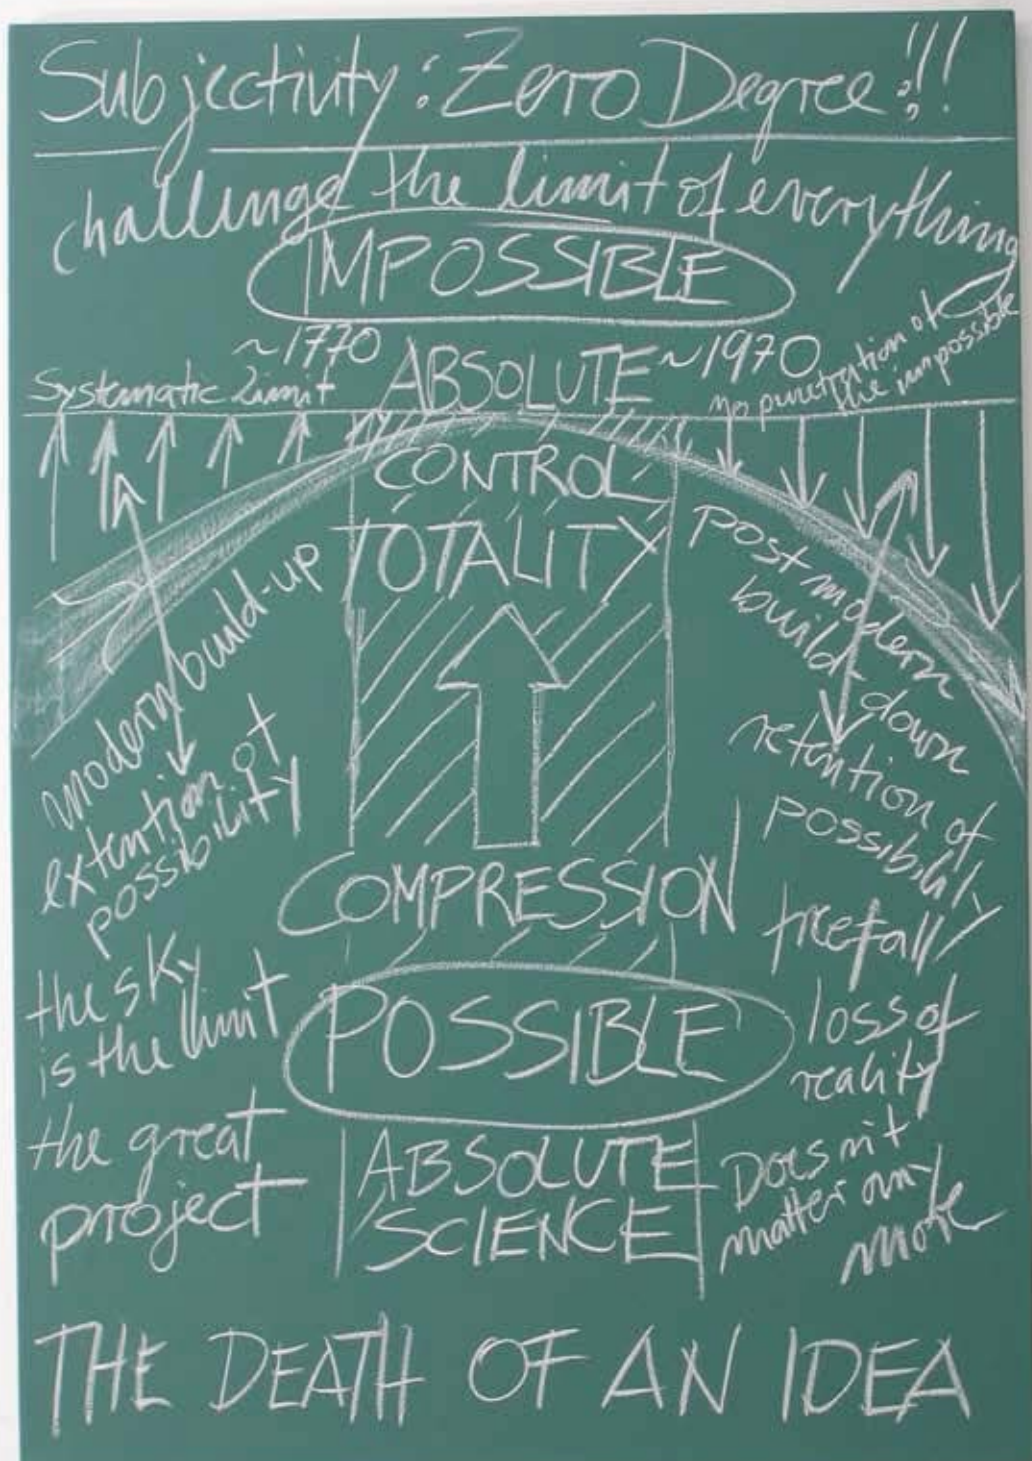 Subjectivity: Zero Degree!!!
challenge the limit of everything
IMPOSSIBLE
~1770
ABSOLUTE
~1970
Systematic Limit
no punetration of
the impossible
CONTROL
TOTALITY
modern build-up
extention of
possibility
post modern
build-down
retention of
possibility
COMPRESSION
freefall
the sky
is the limit
POSSIBLE
loss of
reality
the great
project
ABSOLUTE
SCIENCE
Doesn't
matter any
more
THE DEATH OF AN IDEA